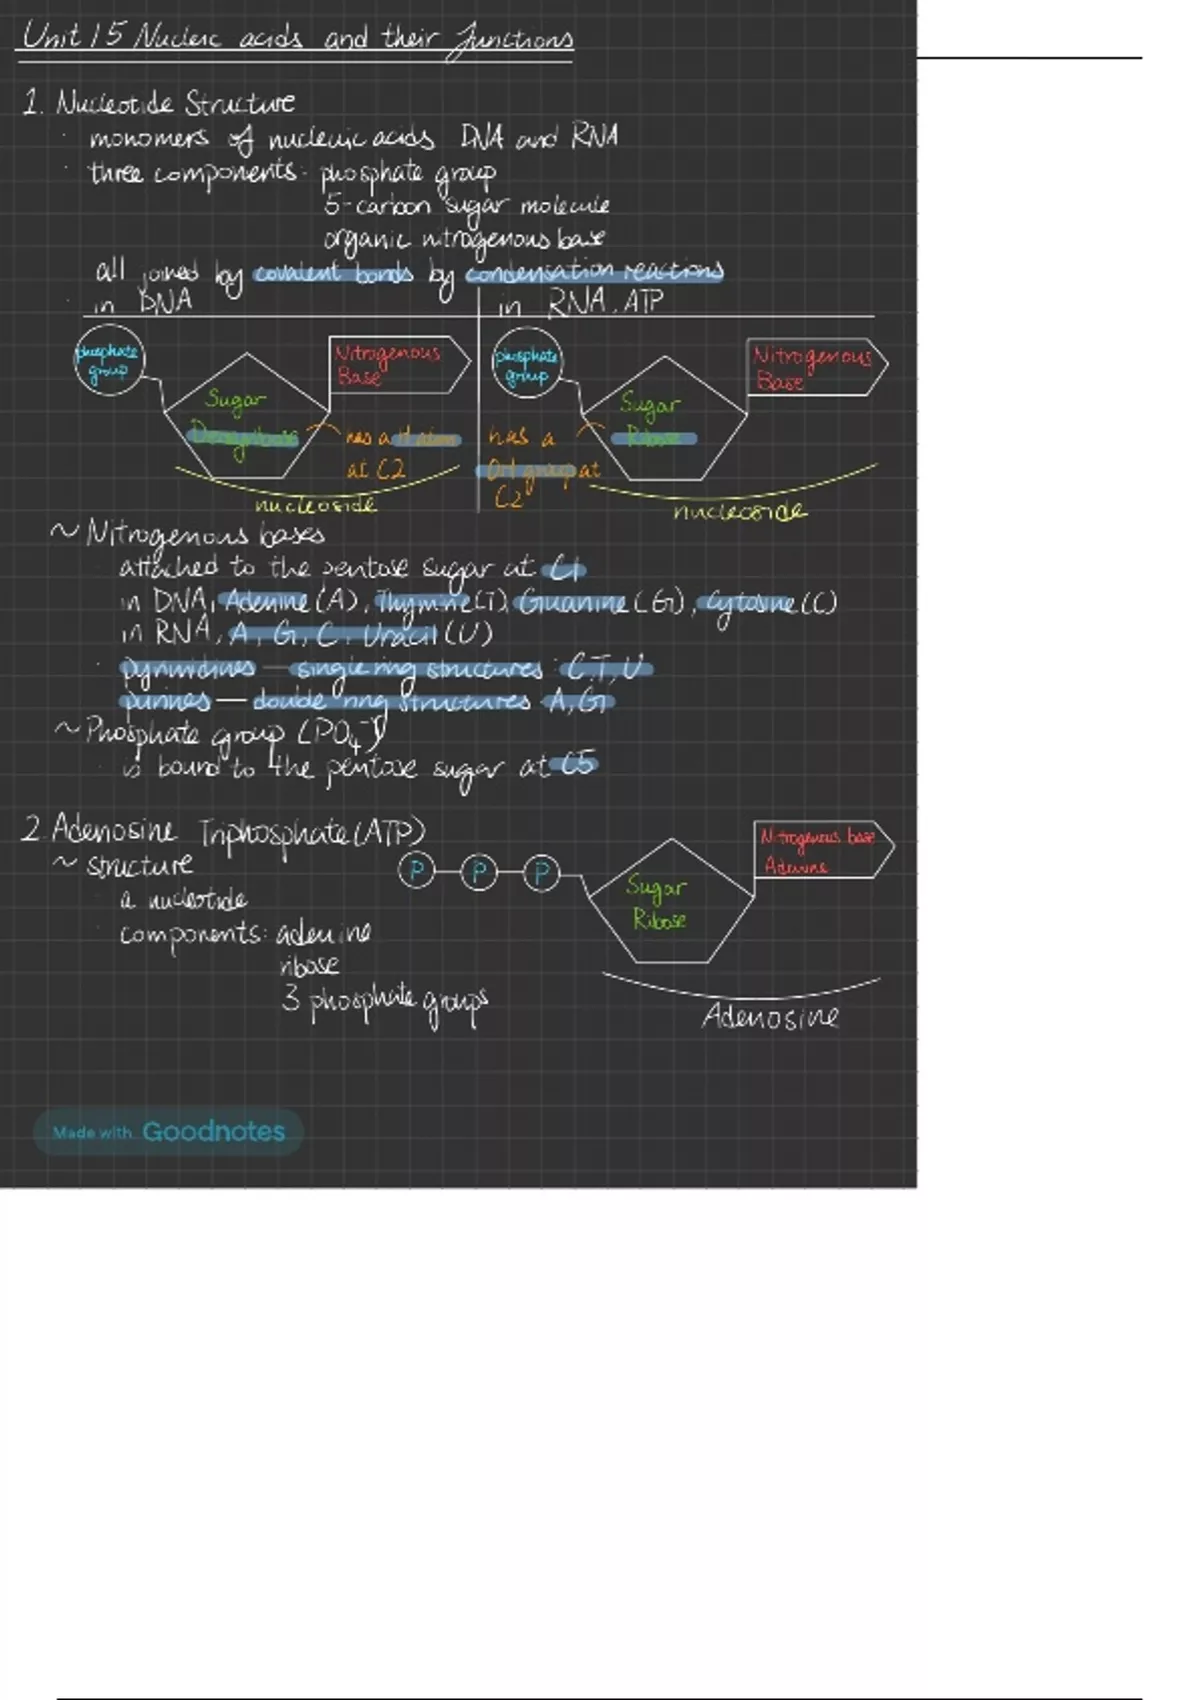 Unit 1.5 Nucleic acids and their functions
1. Nucleotide Structure
· monomers of nucleuic acids DNA and RNA
· three components: phosphate group
5-carbon sugar molecule
organic nitrogenous base
all joined by covalent bonds by condensation reactions
· in DNA
in RNA, ATP
phosphate group
Nitrogenous Base
Sugar
Deoxyribose
has a H atom
at C2
nucleoside
phosphate group
Nitrogenous Base
Sugar
Ribose
has a
OH group at
C2
nucleoside
~ Nitrogenous bases
· attached to the pentose sugar at C1
in DNA, Adenine (A), Thymine (T), Guanine (G), Cytosine (C)
in RNA, A, G, C, Uracil (U)
· pyrimidines — single ring structures: C,T,U
purines — double ring structures A,G
~ Phosphate group
· is bound to the pentose sugar at C5
2. Adenosine Triphosphate (ATP)
~ structure
· a nucleotide
· components: adenine
ribose
3 phosphate groups
P P P
Sugar
Ribose
Nitrogenous base
Adenine
Adenosine
Made with Goodnotes